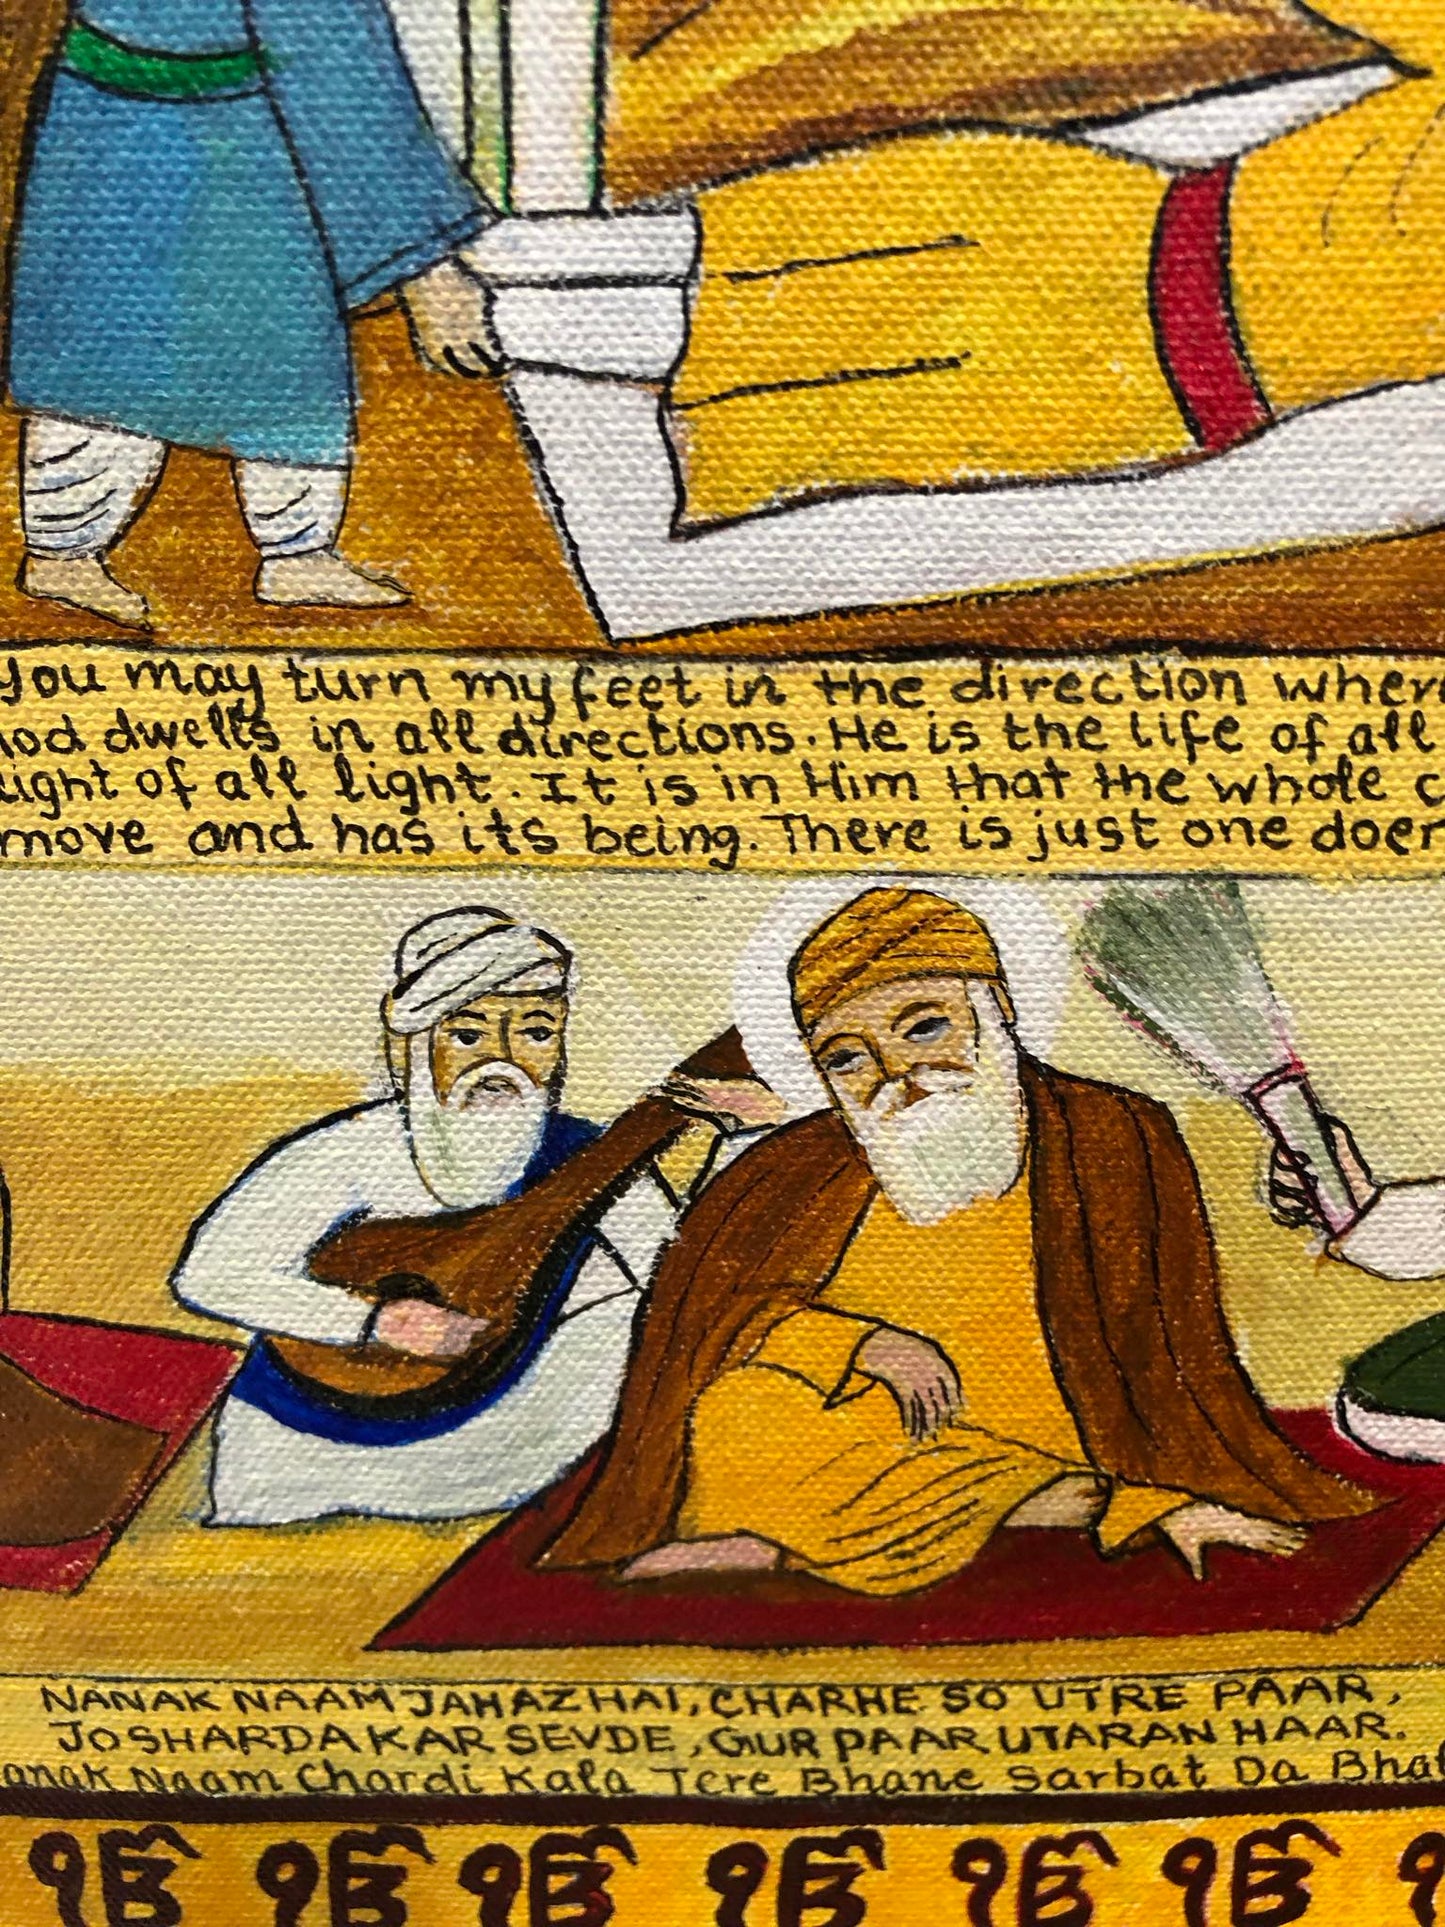 You may turn my feet in the direction wher
od dwells in all directions. He is the life of all
light of all light. It is in Him that the whole c
move and has its being. There is just one doer
NANAK NAAM JAHAZ HAI, CHARHE SO UTRE PAAR,
JO SHARDA KAR SEVDE, GUR PAAR UTARAN HAAR.
anak Naam Chardi Kala Tere Bhane Sarbat Da Bhal
ੴ ੴ ੴ ੴ ੴ ੴ